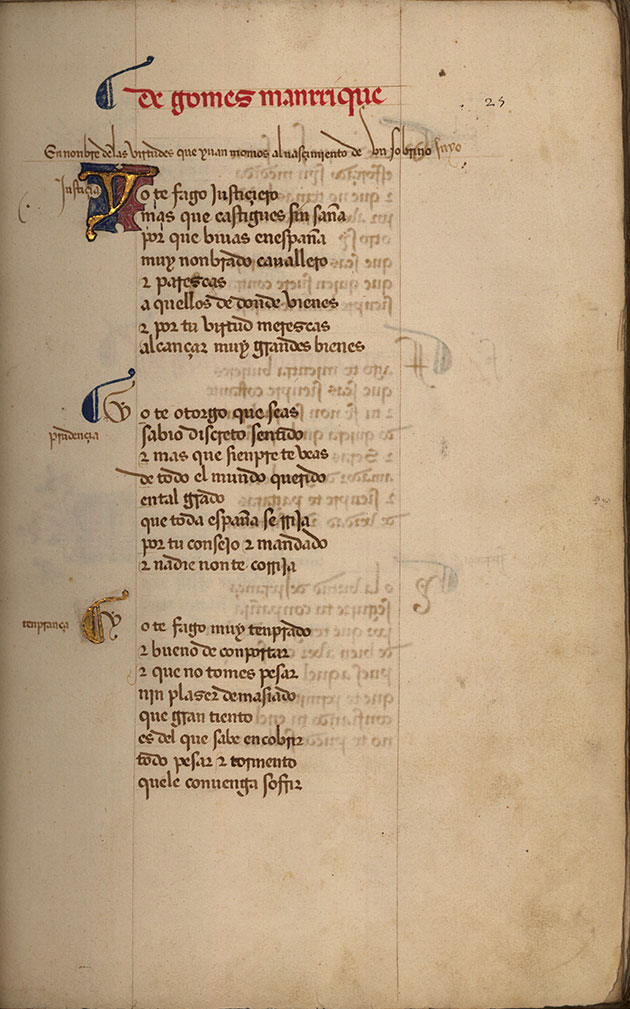 de gomes manrrique
25
En nonbre de las virtudes que yuan momos al nasçimiento de vn sobrino suyo
Justiçia
Yo te fago Justiçiero
mas que castigues sin saña
por que biuas en españa
muy nonbrado cauallero
τ parescas
a quellos de donde vienes
τ por tu virtud merescas
alcançar muy grandes bienes
prudençia
Yo te otorgo que seas
sabio discreto sentido
τ mas que sienpre te veas
de todo el mundo querido
en tal grado
que toda españa se rrija
por tu consejo τ mandado
τ nadie non te corrija
tenprança
Yo te fago muy tenprado
τ bueno de conportar
τ que no tomes pesar
nin plaser demasiado
que gran tiento
es del que sabe encobrir
todo pesar τ tormento
quele conuenga soffrir